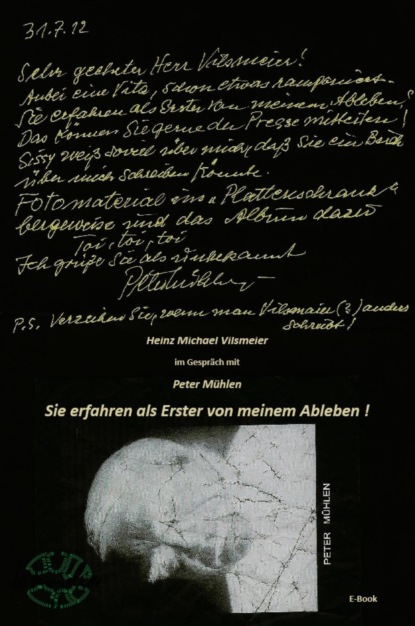 31.7.12
Sehr geehrter Herr Vilsmeier!
Anbei eine Vita, schon etwas ramponiert.
Sie erfahren als Erster von meinem Ableben,
Das können Sie gerne der Presse mitteilen!
Sissy weiß soviel über mich, daß Sie ein Buch
über mich schreiben könnte.
Fotomaterial im "Plattenschrank"
bergeweise und das Album dazu
Toi, toi, toi
Ich grüße Sie als unbekannt
P.S. Verzeihen Sie, wenn man Vilsmaier (?) anders
schreibt!
Heinz Michael Vilsmeier
im Gespräch mit
Peter Mühlen
Sie erfahren als Erster von meinem Ableben !
PETER MÜHLEN
E-Book